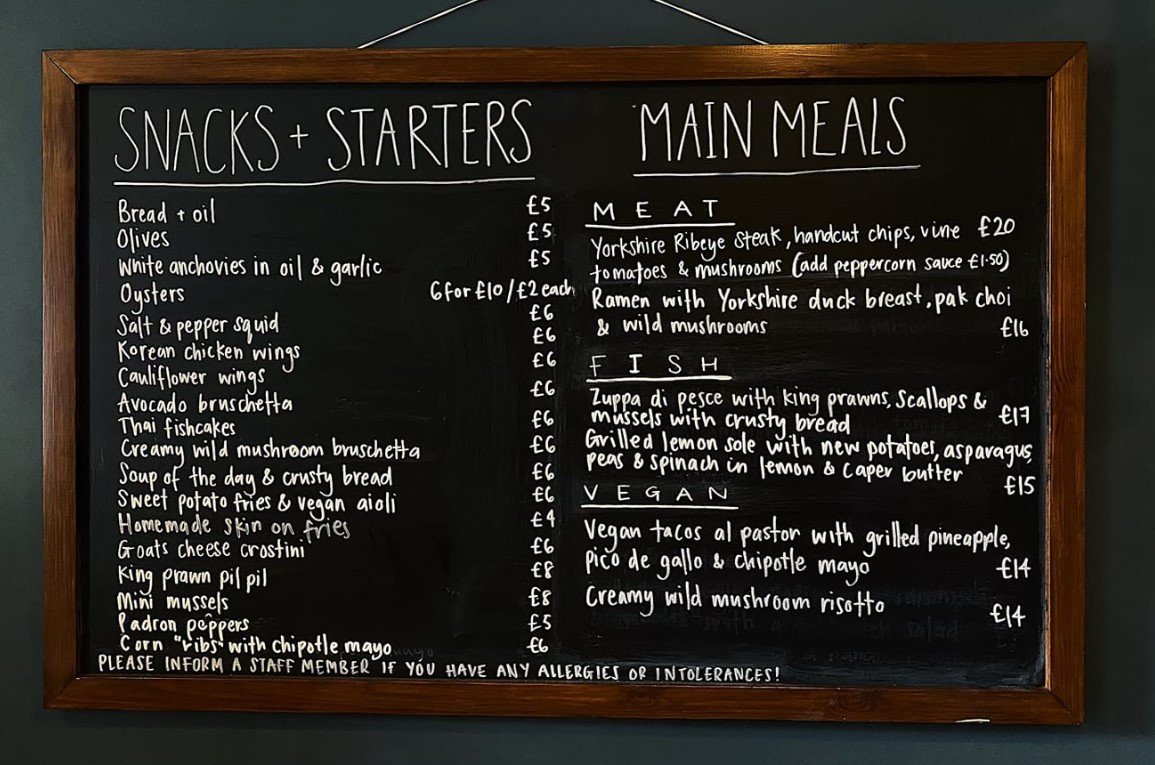 SNACKS + STARTERS
Bread + oil £5
Olives £5
White anchovies in oil & garlic £5
Oysters 6 for £10 / £2 each
Salt & pepper squid £6
Korean chicken wings £6
Cauliflower wings £6
Avocado bruschetta £6
Thai fishcakes £6
Creamy wild mushroom bruschetta £6
Soup of the day & crusty bread £6
Sweet potato fries & vegan aioli £6
Homemade skin on fries £4
Goats cheese crostini £6
King prawn pil pil £8
Mini mussels £8
Padron peppers £5
Corn "ribs" with chipotle mayo £6
PLEASE INFORM A STAFF MEMBER IF YOU HAVE ANY ALLERGIES OR INTOLERANCES!
MAIN MEALS
MEAT
Yorkshire Ribeye Steak, handcut chips, vine £20
tomatoes & mushrooms (add peppercorn sauce £1.50)
Ramen with Yorkshire duck breast, pak choi
& wild mushrooms £16
FISH
Zuppa di pesce with king prawns, Scallops &
mussels with crusty bread £17
Grilled lemon sole with new potatoes, asparagus,
peas & spinach in lemon & caper butter £15
VEGAN
Vegan tacos al pastor with grilled pineapple,
pico de gallo & chipotle mayo £14
Creamy wild mushroom risotto £14